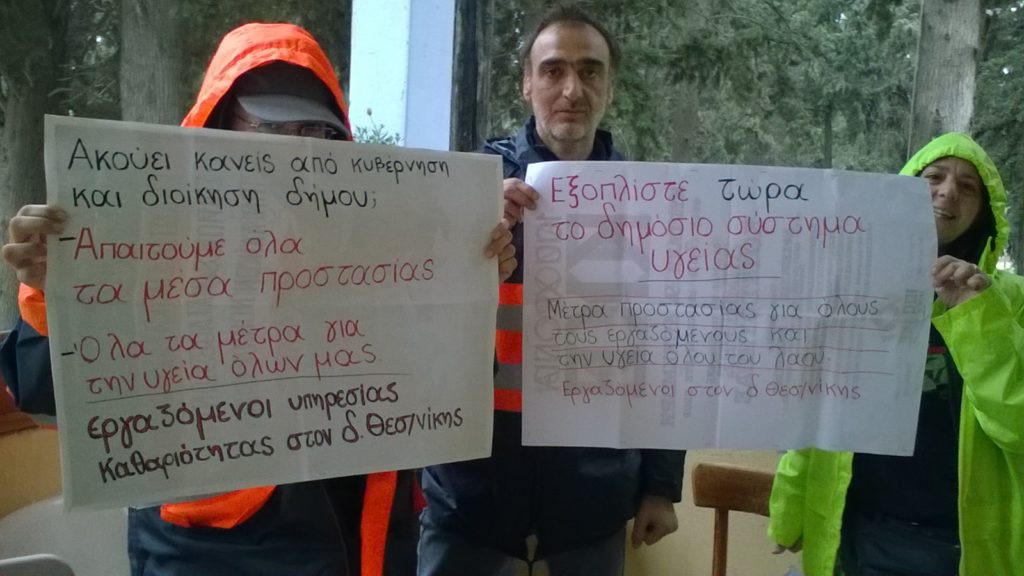 Ακούει κανείς από κυβέρνηση
και διοίκηση δήμου;
-Απαιτούμε όλα
τα μέσα προστασίας
-Όλα τα μέτρα για
την υγεία όλων μας.
εργαζόμενοι υπηρεσίας
καθαριότητας στον δ. Θεσ/νίκης
Εξοπλίστε τώρα
το δημόσιο σύστημα
υγείας
Μέτρα προστασίας για όλους
τους εργαζόμενους και
την υγεία όλου του λαού.
Εργαζόμενοι στον δ. Θεσ/νίκης